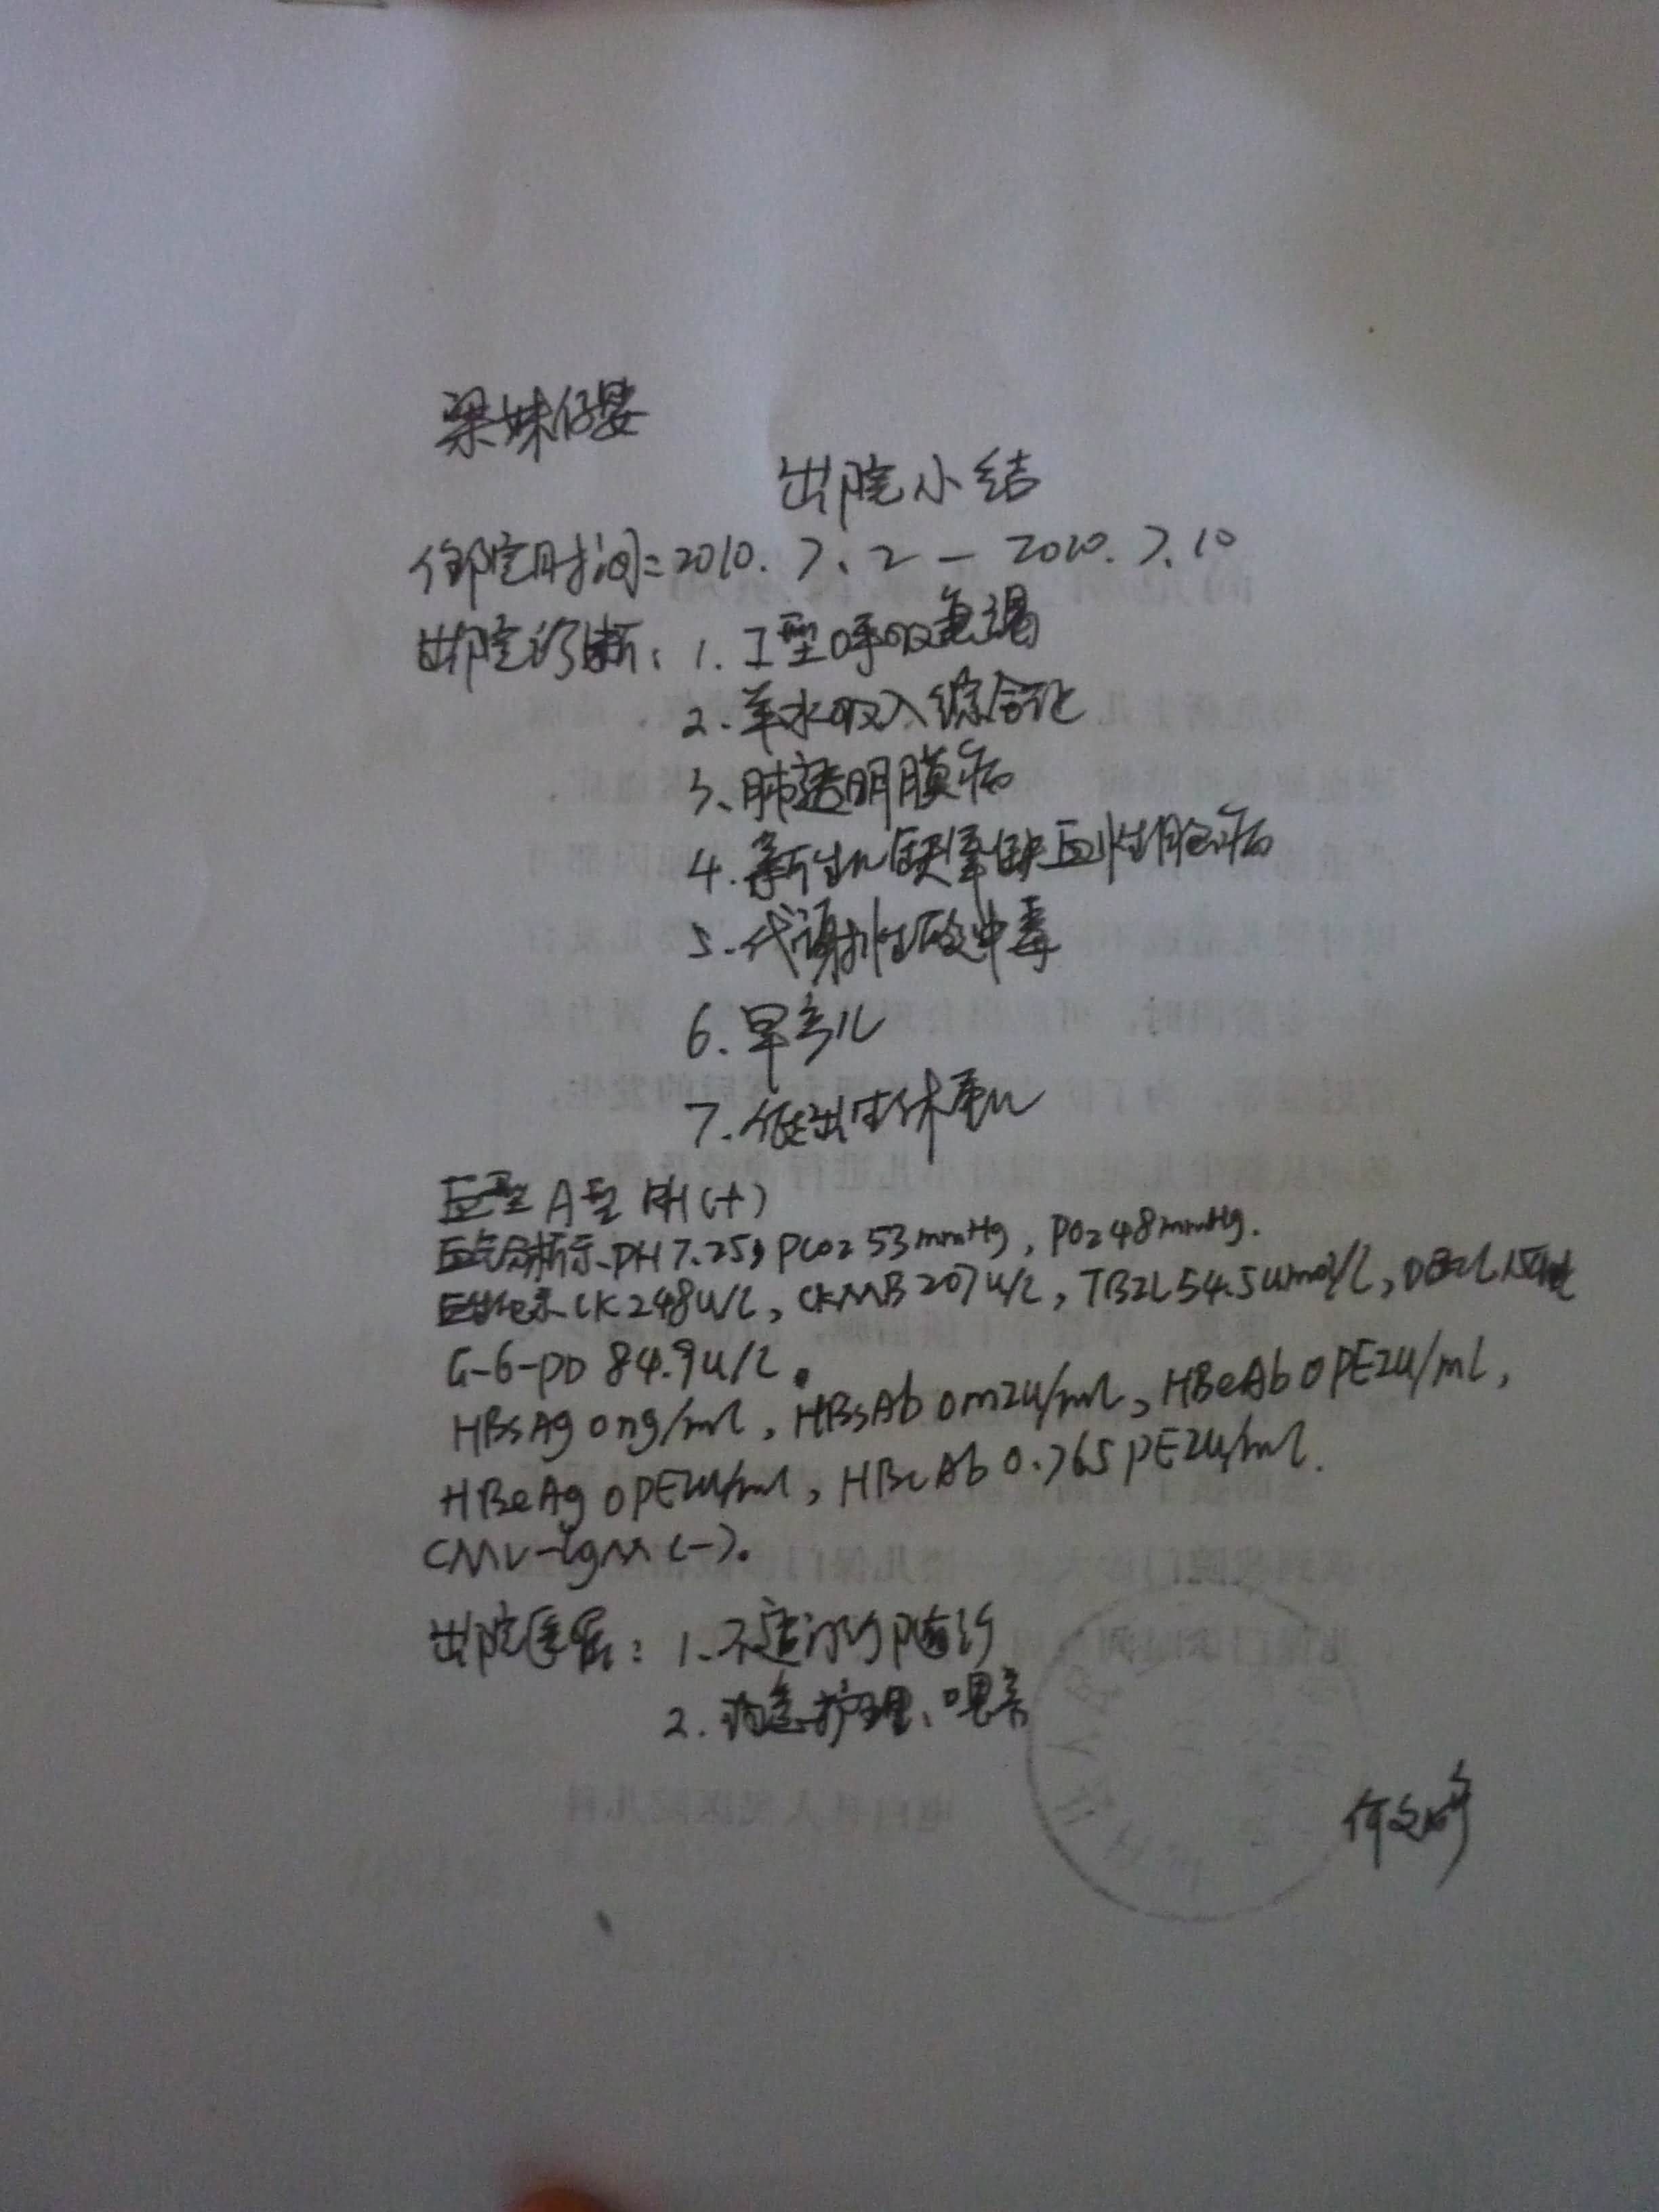 梁妹仔婴
出院小结
住院时间:2010.7.2-2010.7.10
出院诊断:1.I型呼吸衰竭
2.羊水吸入综合征
3、肺透明膜病
4.新生儿缺氧缺血性脑病
5.代谢性酸中毒
6.早产儿
7.低出生体重儿
血型A型 RH(+)
血气分析示:PH 7.25, PCO2 53mmHg, PO2 48mmHg.
CK 248U/L, CKMB 207U/L, TBIL 54.5umol/L, DBIL
G-6-PD 84.9U/L.
HBsAg 0ng/ml, HBsAb 0mIU/ml, HBeAb 0PEIU/ml,
HBeAg 0PEIU/ml, HBcAb 0.765PEIU/ml.
CMV-IgM(-).
出院医嘱:1.不适门诊随诊
2.注意护理、喂养